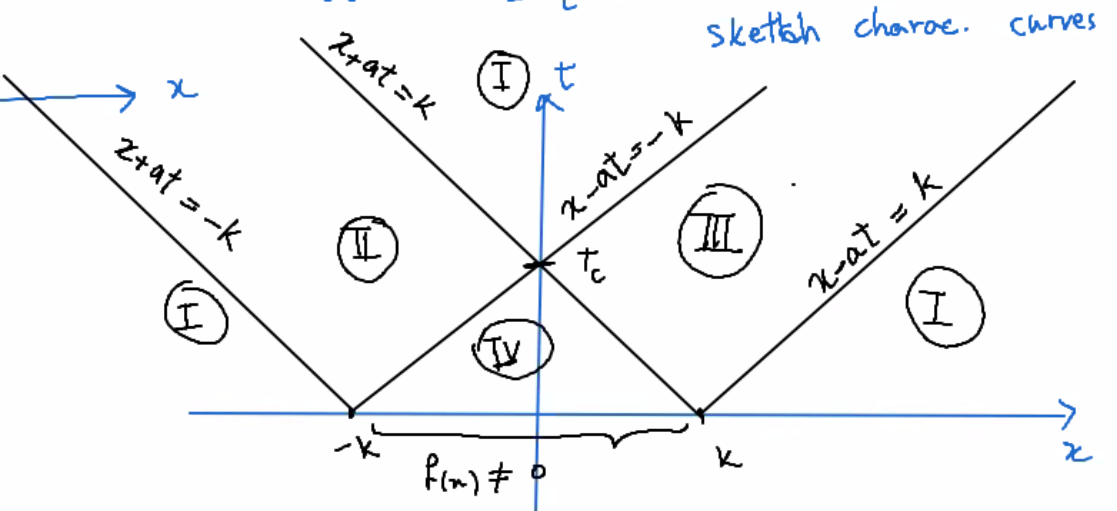 sketch charac. curves
x
x+at=k
I
t
x+at=-k
x-at=-k
II
III
x-at=k
Tc
I
I
IV
-k
k
x
f(x) ≠ 0